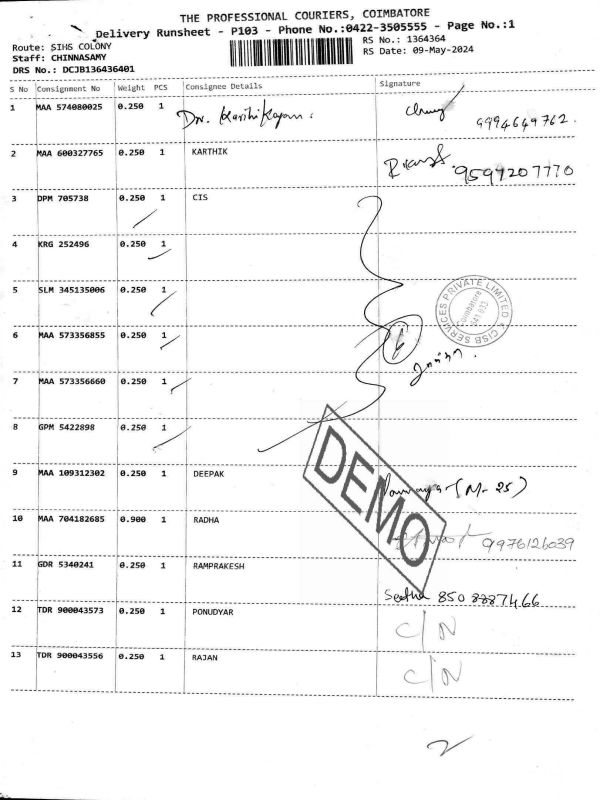 THE PROFESSIONAL COURIERS, COIMBATORE
Delivery Runsheet - P103 - Phone No.:0422-3505555 - Page No.:1
Route: SIHS COLONY
RS No.: 1364364
Staff: CHINNASAMY
RS Date: 09-May-2024
DRS No.: DCJB136436401
S No Consignment No Weight PCS Consignee Details Signature
1 MAA 574080025 0.250 1 9994649762.
2 MAA 600327765 0.250 1 KARTHIK 9597207770
3 DPM 705738 0.250 1 CIS
4 KRG 252496 0.250 1
5 SLM 345135006 0.250 1
SERVICES PRIVATE LIMITED
CISB
Coimbatore
641 033
6 MAA 573356855 0.250 1
6
7 MAA 573356660 0.250 1
8 GPM 5422898 0.250 1
DEMO
9 MAA 109312302 0.250 1 DEEPAK (M-25)
10 MAA 704182685 0.900 1 RADHA 9976126039
11 GDR 5340241 0.250 1 RAMPRAKESH
Seetha 850 8887466
12 TDR 900043573 0.250 1 PONUDYAR C/N
13 TDR 900043556 0.250 1 RAJAN C/N
2